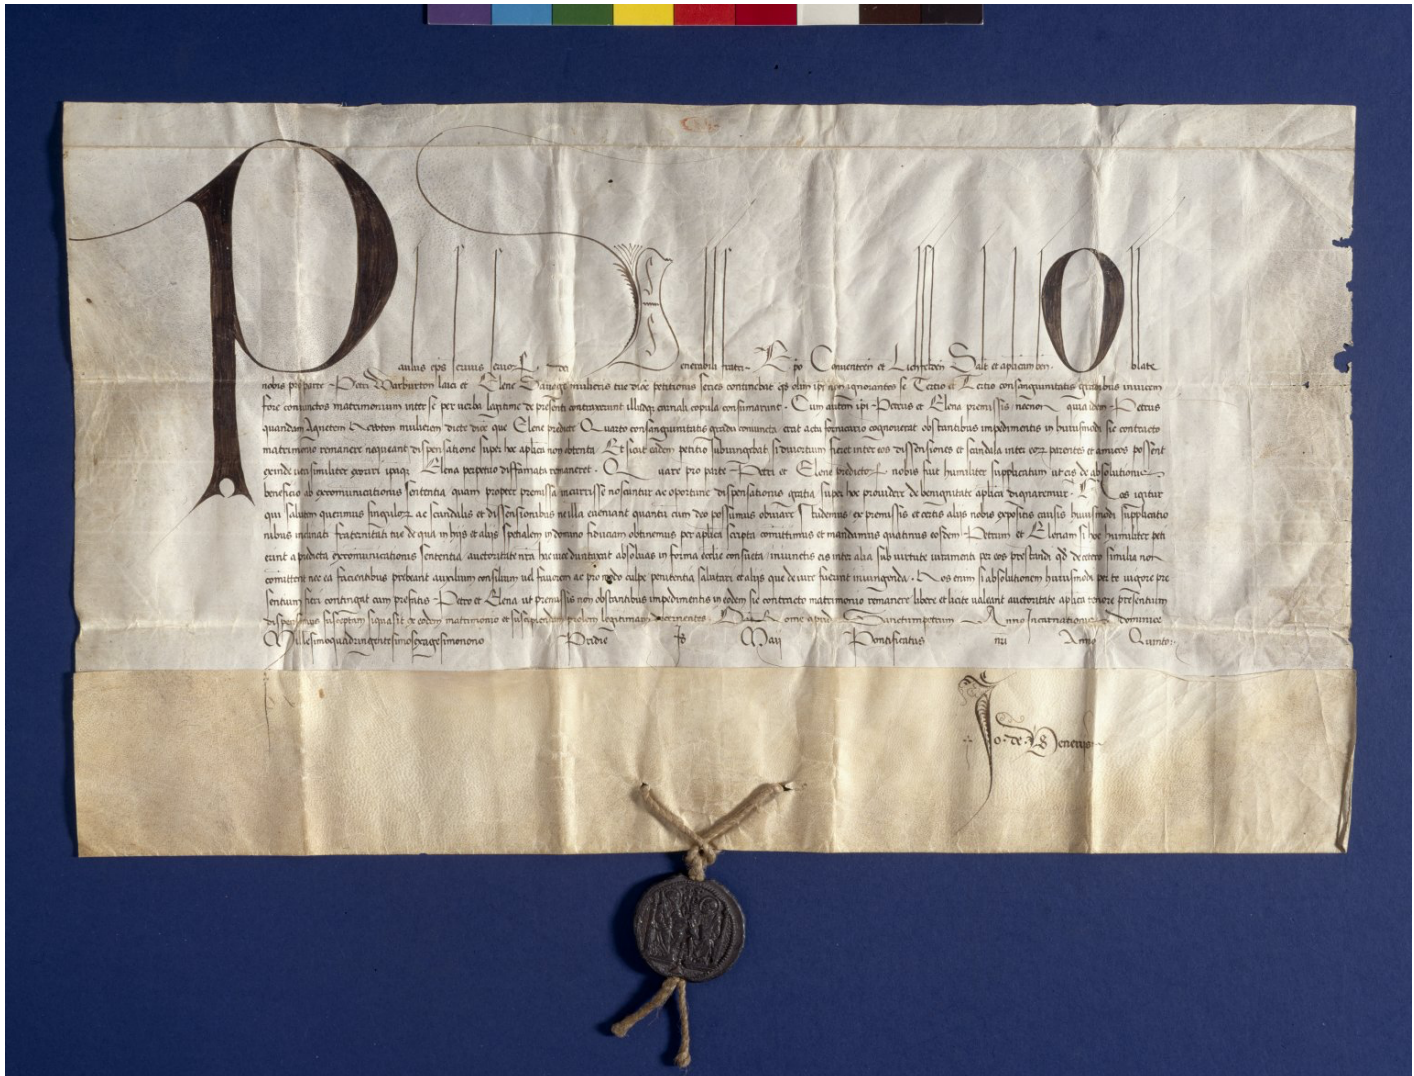 Paulus eps servus servor dei Venerabili fratri Epo Conventren et Lichfelden Salt et aplicam ben Oblate
nobis pro parte Petri Warburton laici et Elene Savage mulieris tue dioc petitionis series continebat qd olim ipi non ignorantes se Tertio et Tertio consanguinitatis gradibus invicem
fore coniunctos matrimonium inter se per verba legitime de presenti contraxerunt illudque carnali copula consumarunt Cum autem ipi Petrus et Elena premissis necnon quia idem Petrus
quandam Agnetem Newton mulierem dicte dioc que Elene predicte Quarto consanguinitatis gradu coniuncta erat actu fornicario cognoverat obstantibus impedimentis in huiusmodi sic contracto
matrimonio remanere nequeant dispensatione super hoc aplica non obtenta Et sicut eadem petitio subiungebat si divortium fieret inter eos dissensiones et scandala inter eor parentes et amicos possent
exinde verisimiliter exoriri ipaque Elena perpetuo diffamata remaneret Quare pro parte Petri et Elene predictor nobis fuit humiliter supplicatum ut eis de absolutionis
beneficio ab excomunicationis sententia quam propter premissa incurrisse noscuntur ac oportune dispensationis gratia super hoc providere de benignitate aplica dignaremur Nos igitur
qui salutem querimus singulor ac scandalis et dissensionibus ne illa eveniant quantu cum deo possumus obviare studemus ex premissis et certis aliis nobis expositis causis huiusmodi supplicatio
nibus inclinati fraternitati tue de qua in hiis et aliis specialem in domino fiduciam obtinemus per aplica scripta comittimus et mandamus quatinus eosdem Petrum et Elenam si hoc humiliter peti
erint a predicta excomunicationis sententia auctoritate nra hac vice duntaxat absolvas in forma ecclie consueta iniunctis eis inter alia sub virtute iuramenti per eos prestandi qd de cetero similia non
comittent nec ea facientibus prebeant auxilium consilium vel favorem ac pro modo culpe penitentia salutari et aliis que de iure fuerint iniungenda Nos enim si absolutionem huiusmodi per te vigore pre
sentium fieri contingat cum prefatis Petro et Elena ut premissis non obstantibus impedimentis in eodem sic contracto matrimonio remanere libere et licite valeant auctoritate aplica tenore presentium
dispensamus susceptam si qua sit et ex eodem matrimonio et suscipiendam prolem legitimam decernentes Dat Rome apud Sanctumpetrum Anno Incarnationis dominice
Millesimoquadringentesimosexagesimonono Pridie Id Maii Pontificatus nri Anno Quinto
Jo de Veneriis